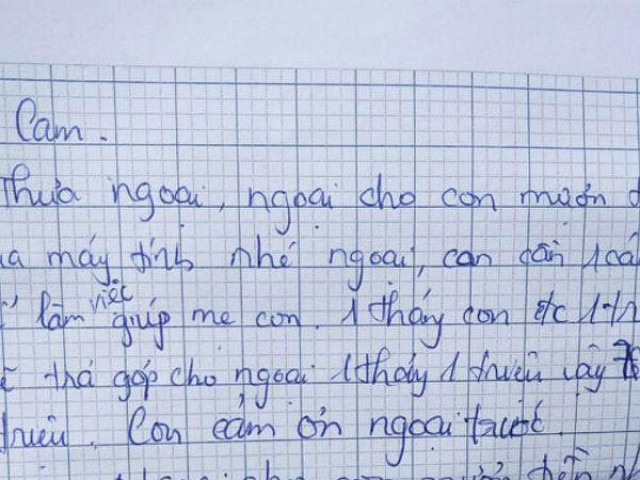 Cam.
Thưa ngoại, ngoại cho con mượn
máy tính nhé ngoại, con cần 1 cái
làm việc giúp mẹ con. 1 tháy con đc 1 tr
trả góp cho ngoại 1 tháy 1 triệu vậy
triệu. Con cảm ơn ngoại trước.
cho con mượn tiền